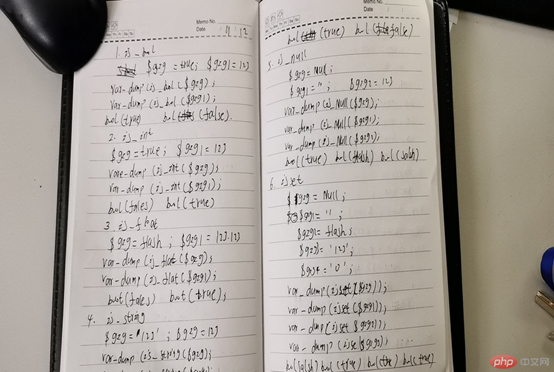 Memo No.
Date 11 . 12
1. is_bol
$gzg = true; $gzg1 = 123
var-dump (is_bol ($gzg);
var-dump (is_bol ($gzg1);
bol (true) bol (false).
2. is_int
$gzg = true; $gzg1 = 123
var-dump (is_int ($gzg);
var-dump (is_int ($gzg1);
bol (fales) bol (true)
3. is_float
$gzg = flash; $gzg1 = 123.123
var-dump (is_float ($gzg);
var-dump (is_float ($gzg1);
bol (fales) bol (true);
4. is_string
$gzg = '123' ; $gzg = 123
var-dump (is_string ($gzg);
Memo No.
Date
bol (true) bol (false)
5. is_null
$gzg = Null;
$gzg1 = '' ; $gzg2 = 123
var-dump (is_Null ($gzg);
var-dump (is_Null ($gzg1);
var-dump (is_Null ($gzg2);
bol (true) bol (flash) bol (flash)
6. isset
$gzg = Null;
$gzg1 = '' ;
$gzg2 = flash;
$gzg3 = '123' ;
$gzg4 = '0' ;
var-dump (isset ($gzg));
var-dump (isset ($gzg1));
var-dump (isset ($gzg2));
var-dump (isset ($gzg3));
bol (flash) bol (true) bol (true) bol (true)
php 中文网